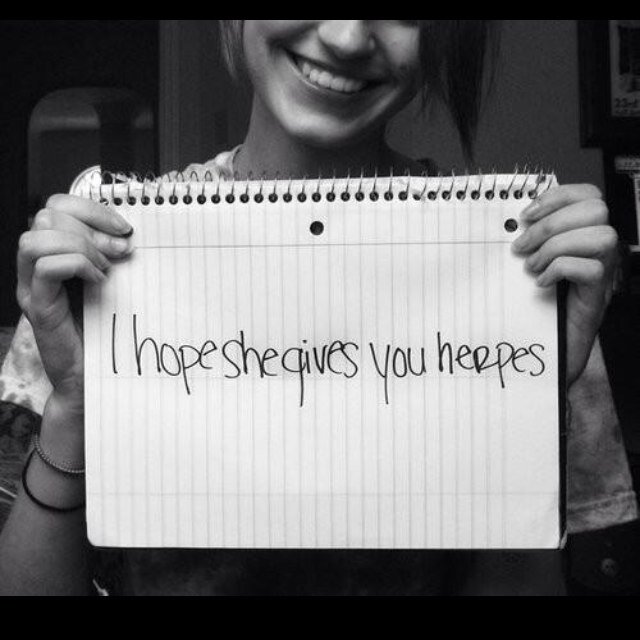 I hope she gives you herpes
23rd